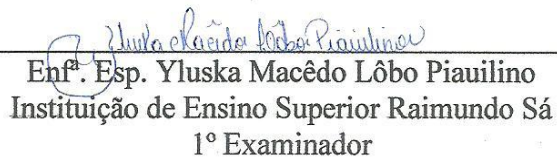 Yluska Macêdo Lôbo Piauilino
Enfª. Esp. Yluska Macêdo Lôbo Piauilino
Instituição de Ensino Superior Raimundo Sá
1º Examinador